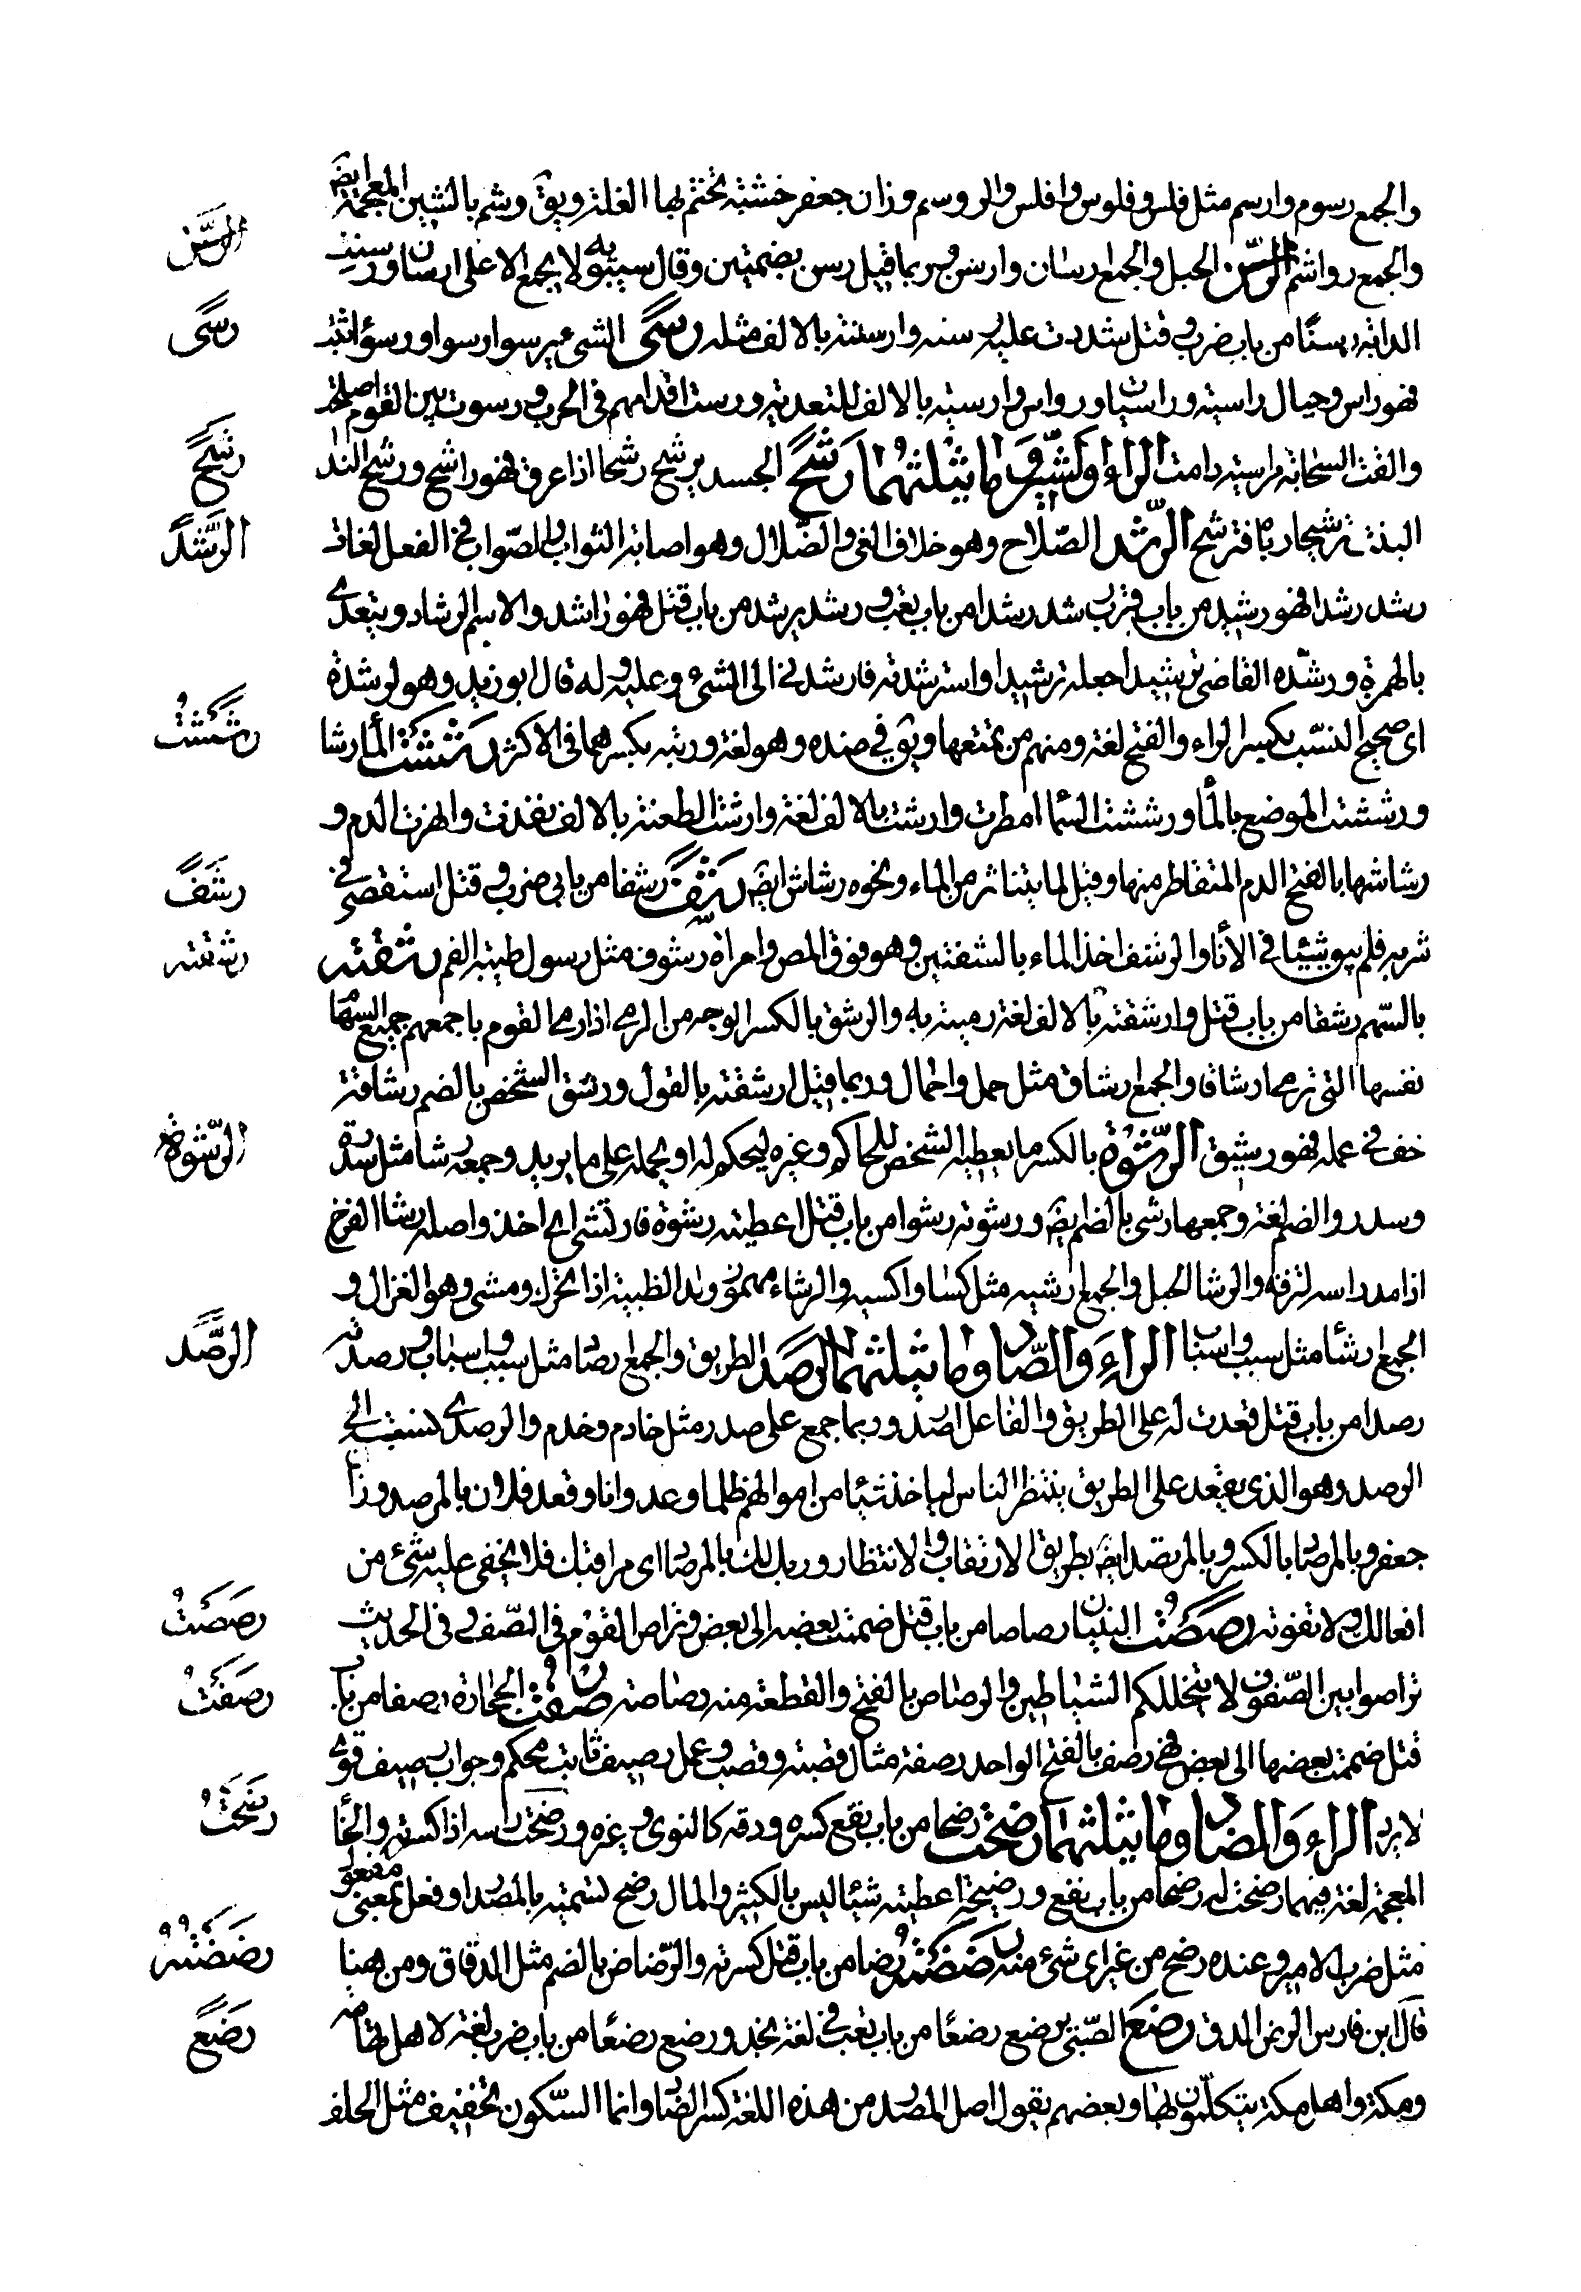 والجمع رسوم وارسم مثل فلس وفلوس وافلس والروسم وزان جعفر خشبة تختم بها الغلة ويق وشم بالشين المعجمة ايضا
الرَّسَن
والجمع رواشم الرَّسَن الحبل والجمع ارسان وارسن وربما قيل رسن بضمتين وقال سيبويه لا يجمع الا على ارسان ورسنت
رسى
الدابة رسنًا من باب ضرب وقتل شددت عليه رسنه وارسنته بالالف مثله رسى الشئ يرسو ارسوا ورسوًّا ثبت
فهو راس وجبال راسية وراسيات ورواس وارسيته بالالف للتعدية ورست اقدامهم في الحرب ورسوت بين القوم اصلحت
رشَحَ
والقت السحابة مراسيه دامت الراء والشين وما يثلثهما رشح الجسد يرشح رشحا اذا عرق فهو راشح ورشح الندى
الرَّشَدُ
النبت ترشيحا رباه فترشح الرشد الصّلاح وهو خلاف الغى والضّلال وهو اصابة الثواب والصّواب في الفعل لغات
رشد رشدا فهو رشيد من باب قرب شد رشدا من باب تعب ورشد يرشد من باب قتل فهو راشد والاسم الرشاد ويتعدى
بالهمزة ورشّده القاضى ترشيدا جعله رشيدا واسترشدته فارشدني الى الشئ وعليه وله قال ابو زيد وهو لرشدة
رَشَشْتُ
اى صحيح النسب بكسر الراء والفتح لغة ومنهم من يمنعها ويق في ضده وهو لغة ورنيه بكسرهما في الاكثر رششت المأ رشا
ورششت الموضع بالمأ ورششت السّمأ امطرت وارشت بالالف لغة وارشت الطعنة بالالف نفذت وانهرت الدم و
رشَفَ
رشاشها بالفتح الدم المتقاطر منها وقيل لما يتناثر من الماء ونحوه رشاش ايضا رشف رشفا من بابى ضرب وقتل استقصى في
رشقته
شربه فلم يبق شيئا في الأنا والرشف اخذ الماء بالشفتين وهو فوق المص وامراة رشوف مثل رسول طيبة الفم رشقته
بالسّهم رشقا من باب قتل وارشقته بالالف لغة رميته به والرشق بالكسر الوجه من الرمى اذا رمى القوم باجمعهم جميع السهام
نفسها التى ترمى ارشاق والجمع ارشاق مثل حمل واحمال وربما قيل ارشقته بالقول ورشق الشخص بالضم رشاقة
الرّشوة
خف في عمله فهو رشيق الرّشوة بالكسر ما يعطيه الشخص للحاكم وغيره ليحكم له او يحمله على ما يريد وجمعه رشا مثل سدرة
وسدر والضم لغة وجمعها رشى بالضم ايضا ورشوته رشوا من باب قتل اعطيته رشوة فارتشى اى اخذ واصله رشا الفرخ
اذا مد راسه لتزقه والرشا الحبل والجمع ارشية مثل كسا واكسيه والرشاء مهموز ولد الظبية اذا تحرك ومشى وهو الغزال و
الرَّصَد
الجمع ارشأ مثل سبب واسباب الراء والصّاد وما يثلثهما الرصد الطريق والجمع ارصاد مثل سبب واسباب ورصدته
رصدا من باب قتل قعدت له على الطريق والفاعل راصد وربما جمع على رصد مثل خادم وخدم والرصدى نسبة الى
الرصد وهو الذى يقعد على الطريق ينتظر الناس لياخذ شيئا من اموالهم ظلما وعدوانا وقعد فلان بالمرصد وزان
جعفر وبالمرصاد بالكسر وبالمرتصد ايضا بطريق الارتقاب والانتظار وربك لك بالمرصاد اى مراقبك فلا يخفى عليه شئ من
رصَصْتُ
افعالك ولا تفوته رصصت البنيان رصاصا من باب قتل ضممت بعضه الى بعض وتراص القوم في الصّف وفى الحديث
رصَفْتُ
تراصوا بين الصّفوف لا يتخللكم الشياطين والرصاص بالفتح والقطعة منه رصاصة رصفت الحجارة رصفا من باب
قتل ضممت بعضها الى بعض فهى رصف بالفتح الواحد رصفة مثال قصبة وقصب وعمل رصيف ثابت محكم وجواب رصيف قوى
رضَخْتُ
لا يرد الراء والضاد وما يثلثهما رضخت رضخا من باب نفع كسره ودقه كالنوى وغيره ورضخت راسه اذا كسرته والخأ
المعجمة لغة فيهما رضخت له رضخا من باب نفع ورضيخة اعطيته شيئا ليس بالكثير والمال رضخ تسمية بالمصدر او فعل بمعنى مفعول
رضَضْتُهُ
مثل ضرب الامير وعنده رضخ من خير اى شئ منه رضضته رضا من باب قتل كسرته والرّضاض بالضم مثل الدقاق ومن هنا
رضَعَ
قال ابن فارس الرض الدق رضع الصّبى يرضع رضعًا من باب تعب في لغة نجد ورضع رضعًا من باب ضرب لغة لاهل تهامة
ومكة واهل مكة يتكلمون بها وبعضهم يقول اصل المصدر من هذه اللغة كسر الضاد وانما السّكون تخفيف مثل الحلف